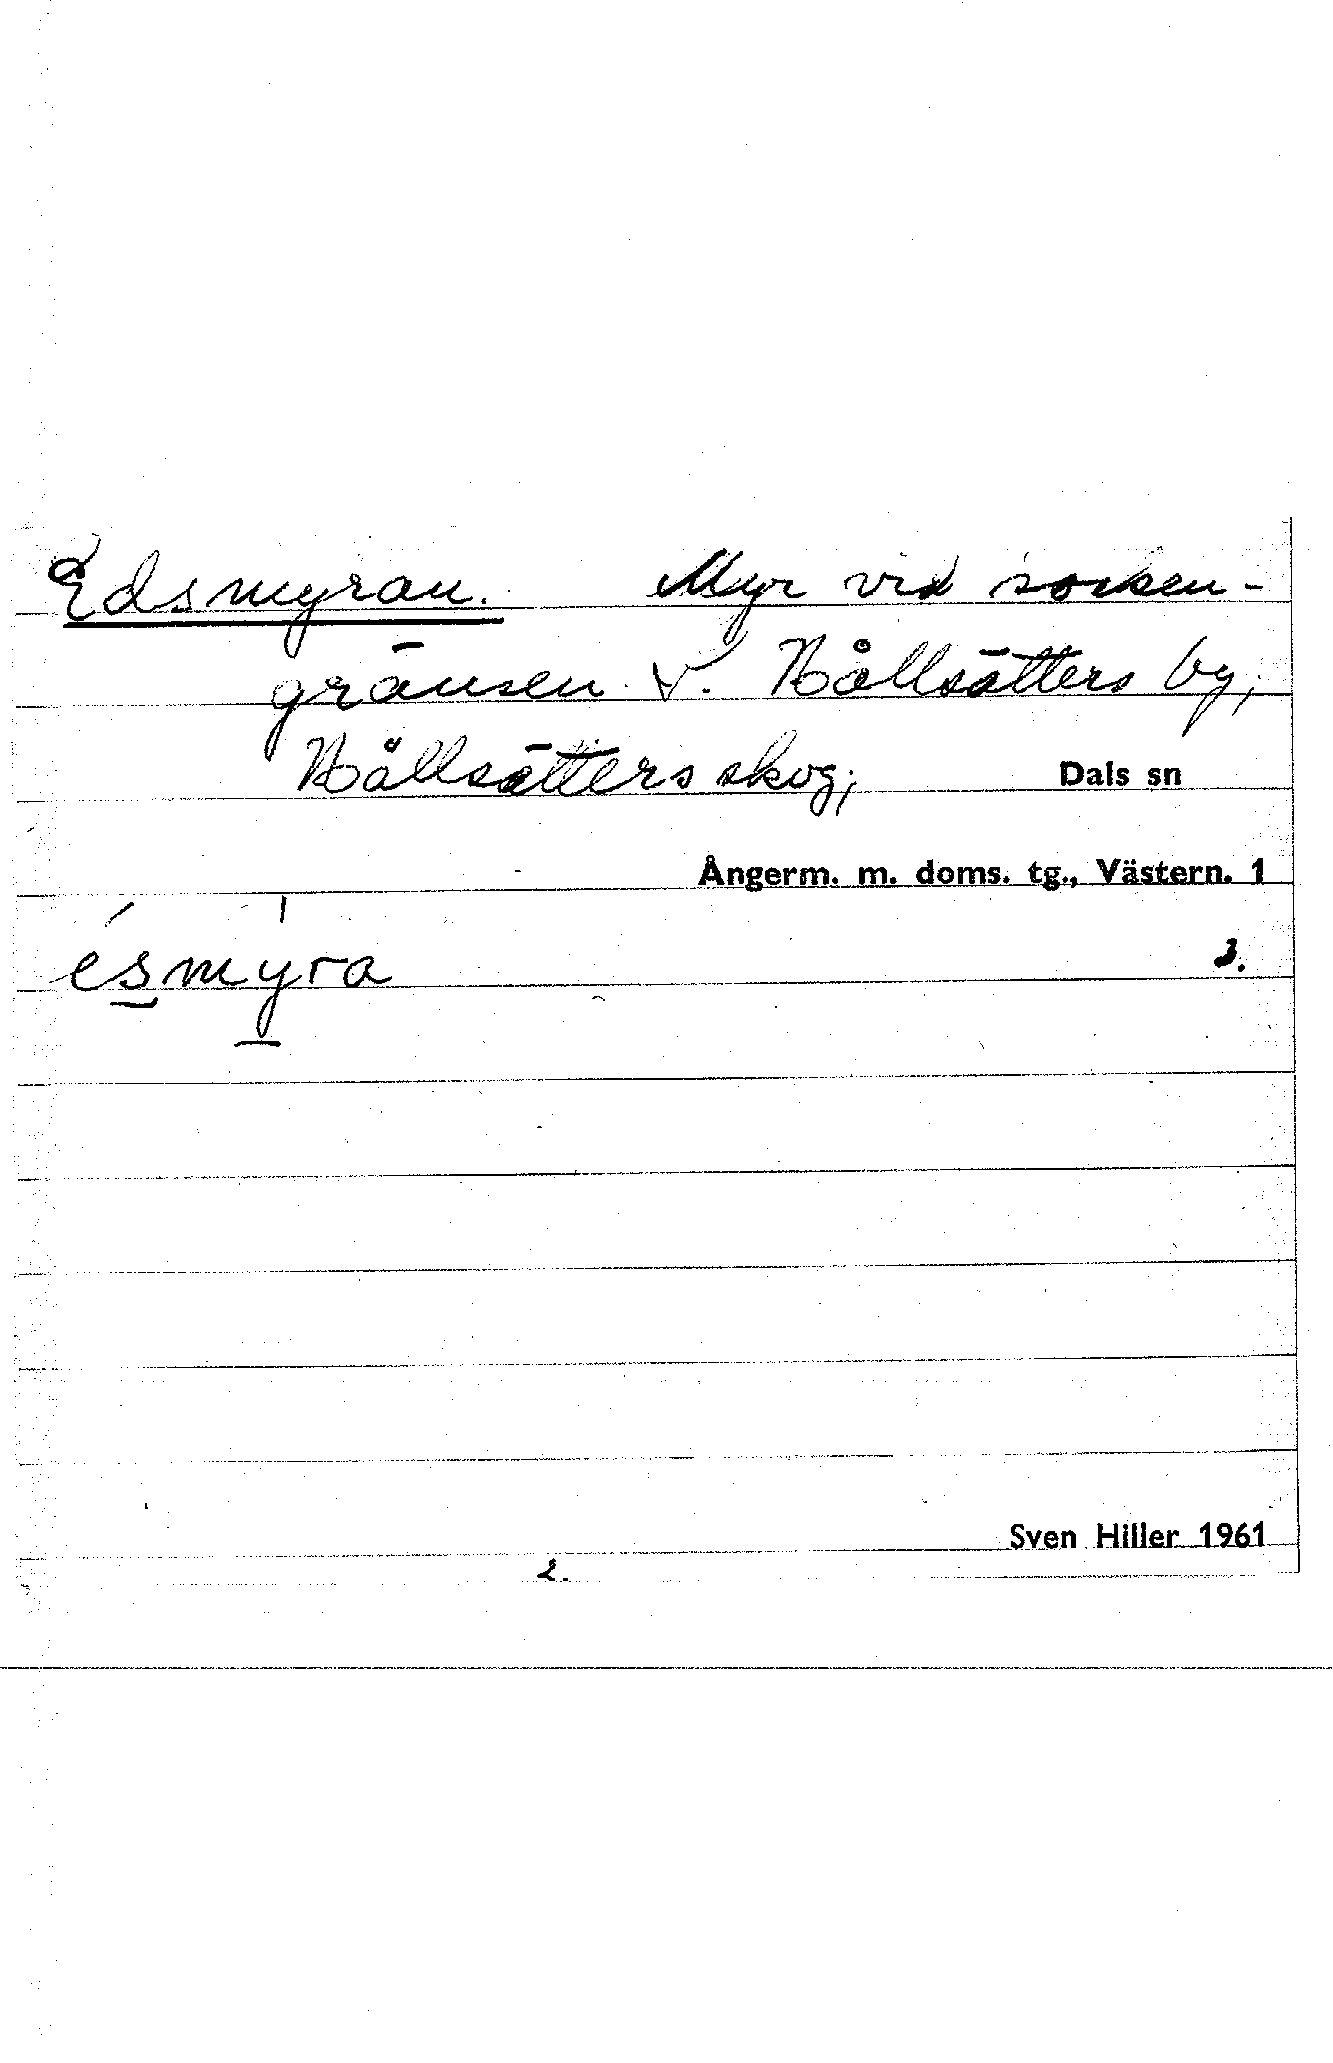 Edsmyran. Myr vid socken-
gränsen V. Bållsätters by;
Bållsätters skog; Dals sn
Ångerm. m. doms. tg., Västern. 1
ésmy̍ra 3.
Sven Hiller 1961
2.